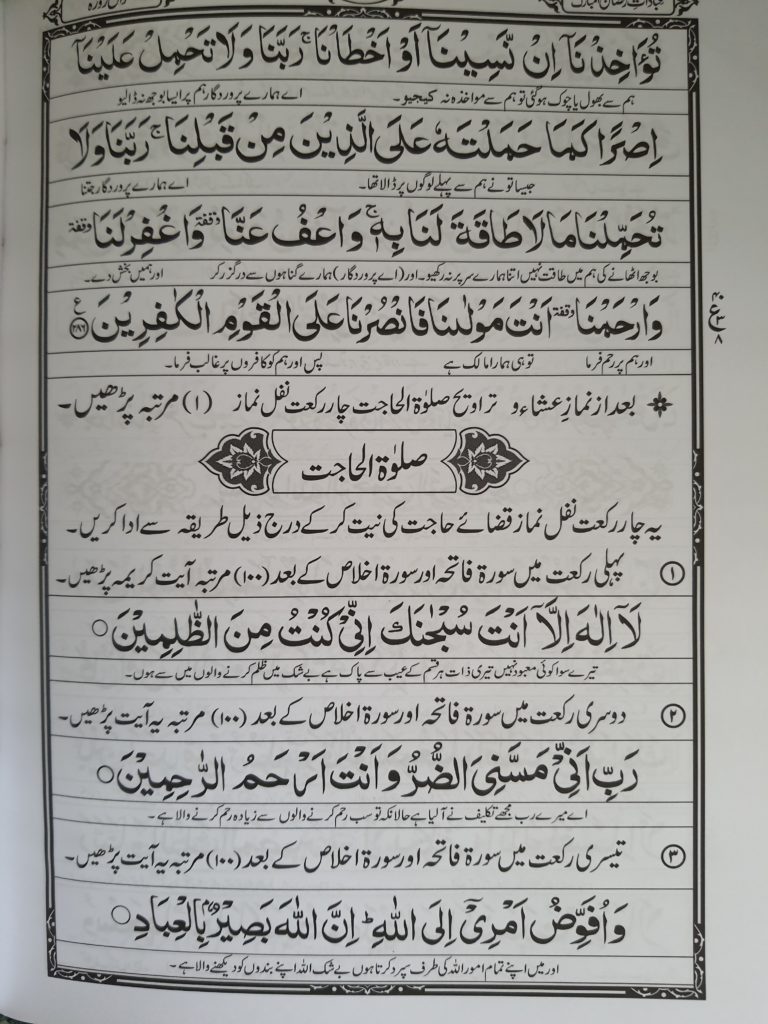 عبادات رمضان المبارک
تُؤَاخِذْنَآ اِنْ نَّسِيْنَآ اَوْ اَخْطَاْنَا ۚ رَبَّنَا وَلَا تَحْمِلْ عَلَيْنَآ
ہم سے بھول یا چوک ہوگئی تو ہم سے مواخذہ نہ کیجیو۔ اے ہمارے پروردگار ہم پر ایسا بوجھ نہ ڈالیو
اِصْرًا كَمَا حَمَلْتَهٗ عَلَى الَّذِيْنَ مِنْ قَبْلِنَا ۚ رَبَّنَا وَلَا
جیسا تو نے ہم سے پہلے لوگوں پر ڈالا تھا۔ اے ہمارے پروردگار جتنا
تُحَمِّلْنَا مَا لَا طَاقَةَ لَنَا بِهٖ ۚ وَاعْفُ عَنَّا وقفة وَاغْفِرْ لَنَا وقفة
بوجھ اٹھانے کی ہم میں طاقت نہیں اتنا ہمارے سر پر نہ رکھیو۔ اور (اے پروردگار) ہمارے گناہوں سے درگزر کر اور ہمیں بخش دے۔
وَارْحَمْنَا وقفة اَنْتَ مَوْلٰىنَا فَانْصُرْنَا عَلَى الْقَوْمِ الْكٰفِرِيْنَ ۲۸۶ ع
اور ہم پر رحم فرما تو ہی ہمارا مالک ہے پس اور ہم کو کافروں پر غالب فرما۔
بعد از نمازِ عشاء و تراویح صلوٰۃ الحاجت چار رکعت نفل نماز (۱) مرتبہ پڑھیں۔
صلوٰۃ الحاجت
یہ چار رکعت نفل نماز قضائے حاجت کی نیت کر کے درج ذیل طریقہ سے ادا کریں۔
۱ پہلی رکعت میں سورۃ فاتحہ اور سورۃ اخلاص کے بعد (۱۰۰) مرتبہ آیت کریمہ پڑھیں۔
لَآ اِلٰهَ اِلَّآ اَنْتَ سُبْحٰنَكَ اِنِّيْ كُنْتُ مِنَ الظّٰلِمِيْنَ ○
تیرے سوا کوئی معبود نہیں تیری ذات ہر قسم کے عیب سے پاک ہے بے شک میں ظلم کرنے والوں میں سے ہوں۔
۲ دوسری رکعت میں سورۃ فاتحہ اور سورۃ اخلاص کے بعد (۱۰۰) مرتبہ یہ آیت پڑھیں۔
رَبِّ اَنِّيْ مَسَّنِيَ الضُّرُّ وَاَنْتَ اَرْحَمُ الرّٰحِمِيْنَ ○
اے میرے رب مجھے تکلیف نے آلیا ہے حالانکہ تو سب رحم کرنے والوں سے زیادہ رحم کرنے والا ہے۔
۳ تیسری رکعت میں سورۃ فاتحہ اور سورۃ اخلاص کے بعد (۱۰۰) مرتبہ یہ آیت پڑھیں۔
وَاُفَوِّضُ اَمْرِيْٓ اِلَى اللّٰهِ ؕ اِنَّ اللّٰهَ بَصِيْرٌۢ بِالْعِبَادِ ○
اور میں اپنے تمام امور اللہ کی طرف سپرد کرتا ہوں بے شک اللہ اپنے بندوں کو دیکھنے والا ہے۔